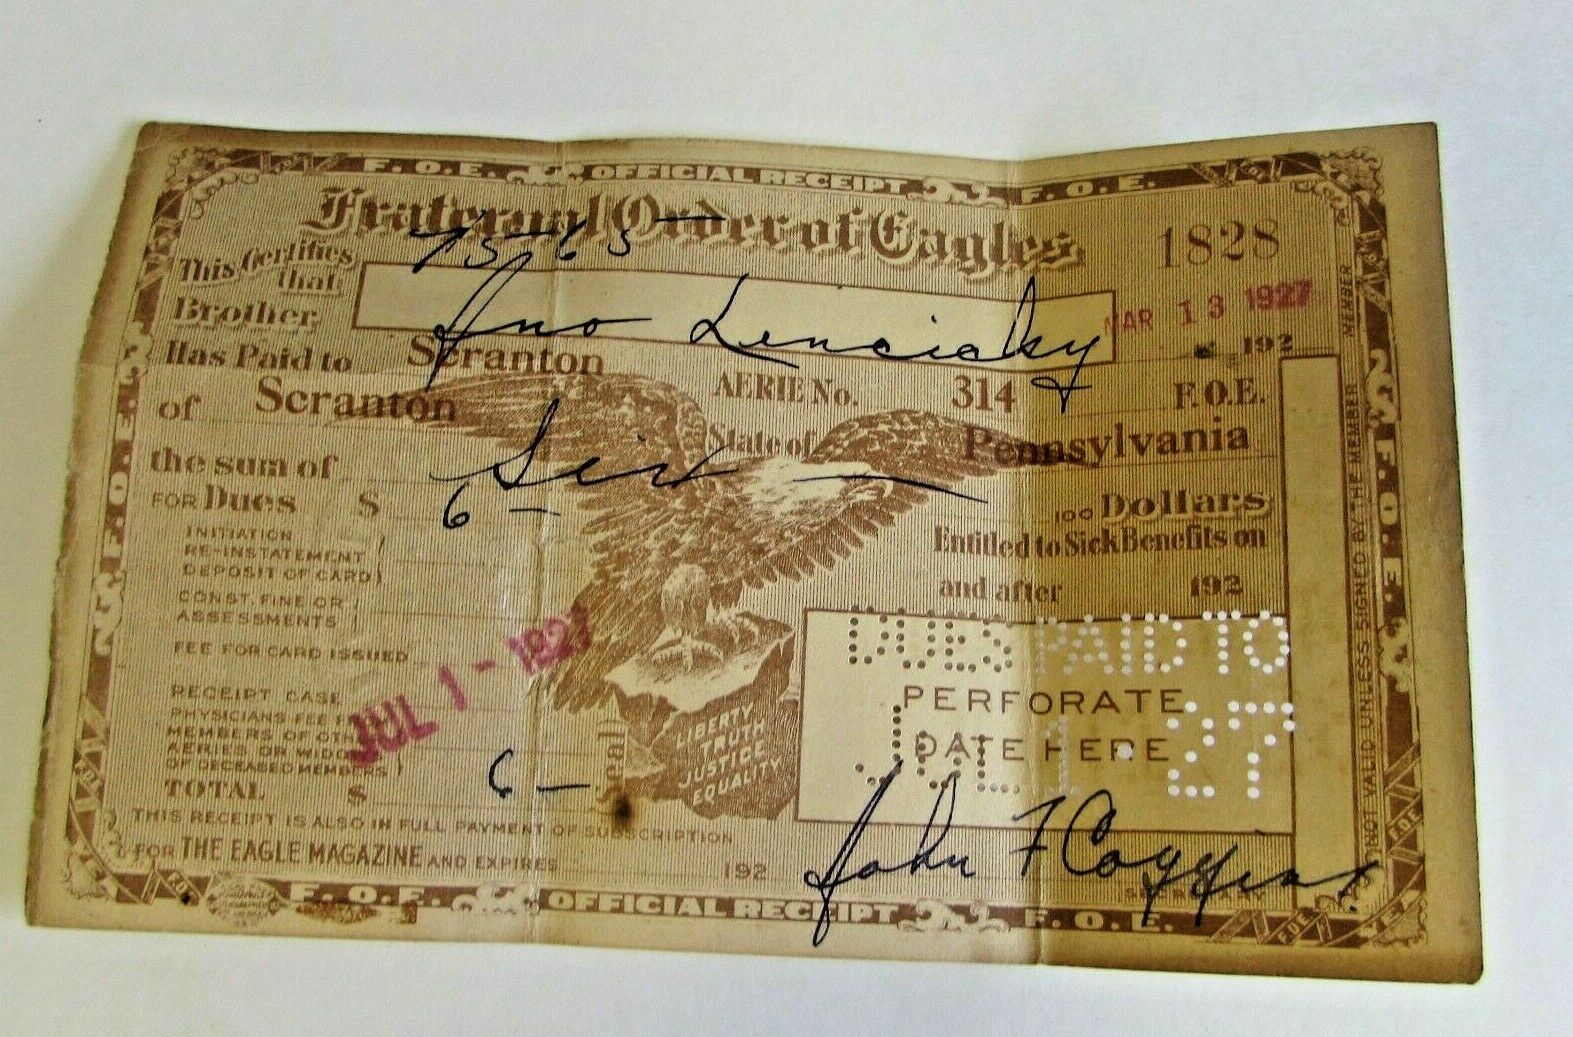 F. O. E. OFFICIAL RECEIPT F. O. E.
Fraternal Order of Eagles 1828
7565
This Certifies that
Brother Jno MAR 13 1927
192
Has Paid to Scranton AERIE No. 314 F.O.E.
of Scranton State of Pennsylvania
the sum of Six — 100 Dollars
FOR Dues $ 6 —
INITIATION
RE-INSTATEMENT
DEPOSIT OF CARD
CONST. FINE OR
ASSESSMENTS
FEE FOR CARD ISSUED
RECEIPT CASE
PHYSICIANS FEE
MEMBERS OF
AERIES OR
OF DECEASED MEMBERS
TOTAL $ 6 —
JUL 1 - 1927
(Seal)
LIBERTY
TRUTH
JUSTICE
EQUALITY
Entitled to Sick Benefits on
and after 192
DUES PAID TO
PERFORATE
JUL 1 · 27
DATE HERE
John F Coggins
SECRETARY
THIS RECEIPT IS ALSO IN FULL PAYMENT OF SUBSCRIPTION
FOR THE EAGLE MAGAZINE AND EXPIRES 192
F. O. E. OFFICIAL RECEIPT F. O. E.
F.O.E.
F.O.E.
NOT VALID UNLESS SIGNED BY THE MEMBER
MEMBER